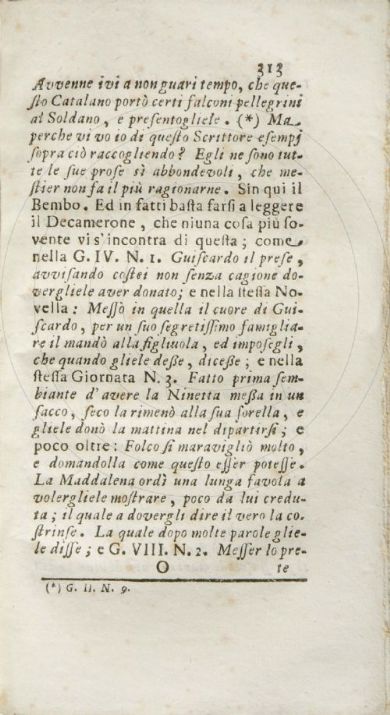 313
Avvenne ivi a non guari tempo, che que-
ſto Catalano portò certi falconi pellegrini
al Soldano, e preſentogliele. (*) Ma
perche vi vo io di queſto Scrittore eſempj
ſopra ciò raccogliendo? Egli ne ſono tut-
te le ſue proſe sì abbondevoli, che me-
ſtier non fa il più ragionarne. Sin qui il
Bembo. Ed in fatti baſta farſi a leggere
il Decamerone, che niuna coſa più ſo-
vente vi s'incontra di queſta; come
nella G. IV. N. 1. Guiſcardo il preſe,
avviſando coſtei non ſenza cagione do-
vergliele aver donato; e nella ſteſſa No-
vella: Meſſo in quella il cuore di Gui-
ſcardo, per un ſuo ſegretiſſimo famiglia-
re il mandò alla figliuola, ed impoſegli,
che quando gliele deße, diceße; e nella
ſteſſa Giornata N. 3. Fatto prima ſem-
biante d'avere la Ninetta meßa in un
ſacco, ſeco la rimenò alla ſua ſorella, e
gliele donò la mattina nel dipartirſi; e
poco oltre: Folco ſi maravigliò molto,
e domandolla come queſto eſſer poteſſe.
La Maddalena ordì una lunga favola a
volergliele moſtrare, poco da lui credu-
ta; il quale a dovergli dire il vero la co-
ſtrinſe. La quale dopo molte parole glie-
le diſſe; e G. VIII. N. 2. Meſſer lo pre-
O te
(*) G. II. N. 9.